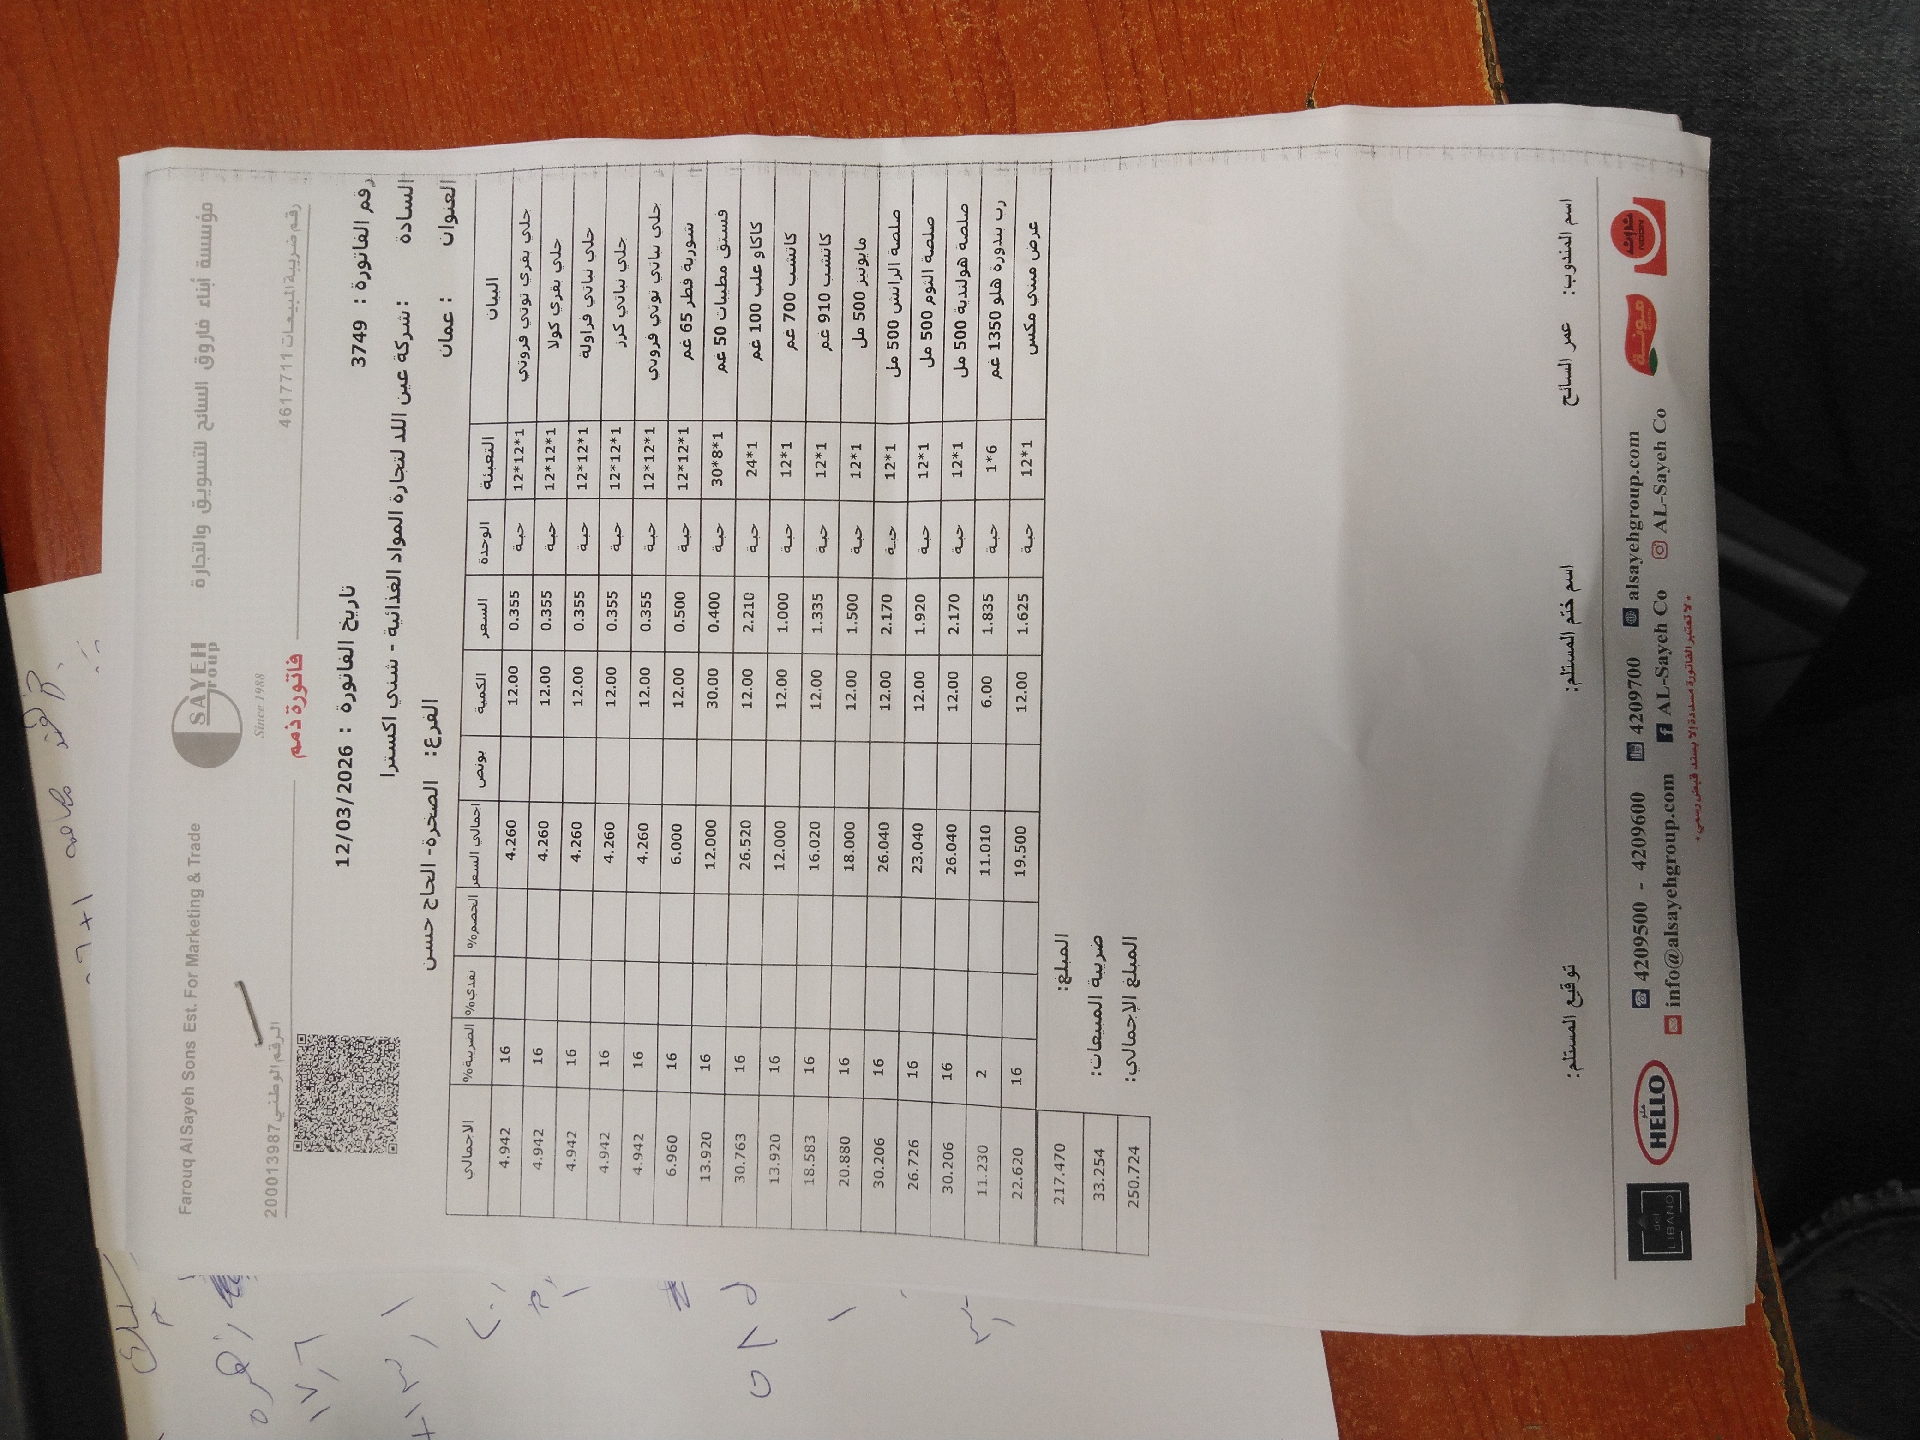 مؤسسة أبناء فاروق السائح للتسويق والتجارة
SAYEH Group
Since 1988
Farouq Al Sayeh Sons Est. For Marketing & Trade
رقم ضريبة المبيعات 4617711
فاتورة ذمم
الرقم الوطني 200013987
رقم الفاتورة : 3749
تاريخ الفاتورة : 12/03/2026
السادة : شركة عين اللد لتجارة المواد الغذائية - شني اكسترا
العنوان : عمان
الفرع: الصخرة- الحاج حسن
البيان التعبئة الوحدة السعر الكمية بونص اجمالي السعر الخصم% نقدي% الضريبة% الاجمالي
حلي بقري توتي فروتي 12*12*1 حبة 0.355 12.00 4.260 16 4.942
حلي بقري كولا 12*12*1 حبة 0.355 12.00 4.260 16 4.942
حلي نباتي فراولة 12*12*1 حبة 0.355 12.00 4.260 16 4.942
حلي نباتي كرز 12*12*1 حبة 0.355 12.00 4.260 16 4.942
حلي نباتي توتي فروتي 12*12*1 حبة 0.355 12.00 4.260 16 4.942
شوربة فطر 65 غم 12*12*1 حبة 0.500 12.00 6.000 16 6.960
فستق مطيبات 50 غم 30*8*1 حبة 0.400 30.00 12.000 16 13.920
كاكاو علب 100 غم 24*1 حبة 2.210 12.00 26.520 16 30.763
كاتشب 700 غم 12*1 حبة 1.000 12.00 12.000 16 13.920
كاتشب 910 غم 12*1 حبة 1.335 12.00 16.020 16 18.583
مايونيز 500 مل 12*1 حبة 1.500 12.00 18.000 16 20.880
صلصة الرانش 500 مل 12*1 حبة 2.170 12.00 26.040 16 30.206
صلصة الثوم 500 مل 12*1 حبة 1.920 12.00 23.040 16 26.726
صلصة هولندية 500 مل 12*1 حبة 2.170 12.00 26.040 16 30.206
رب بندورة هلو 1350 غم 1*6 حبة 1.835 6.00 11.010 2 11.230
عرض ميني مكس 12*1 حبة 1.625 12.00 19.500 16 22.620
المبلغ: 217.470
ضريبة المبيعات: 33.254
المبلغ الإجمالي: 250.724
اسم المندوب: عمر السائح
اسم ختم المستلم:
توقيع المستلم:
NOON
مونة
alsayehgroup.com
4209700
4209500 - 4209600
AL-Sayeh Co
AL-Sayeh Co
info@alsayehgroup.com
هلو
HELLO
del LIBANO
* لا تعتبر الفاتورة مسددة إلا بسند قبض رسمي *